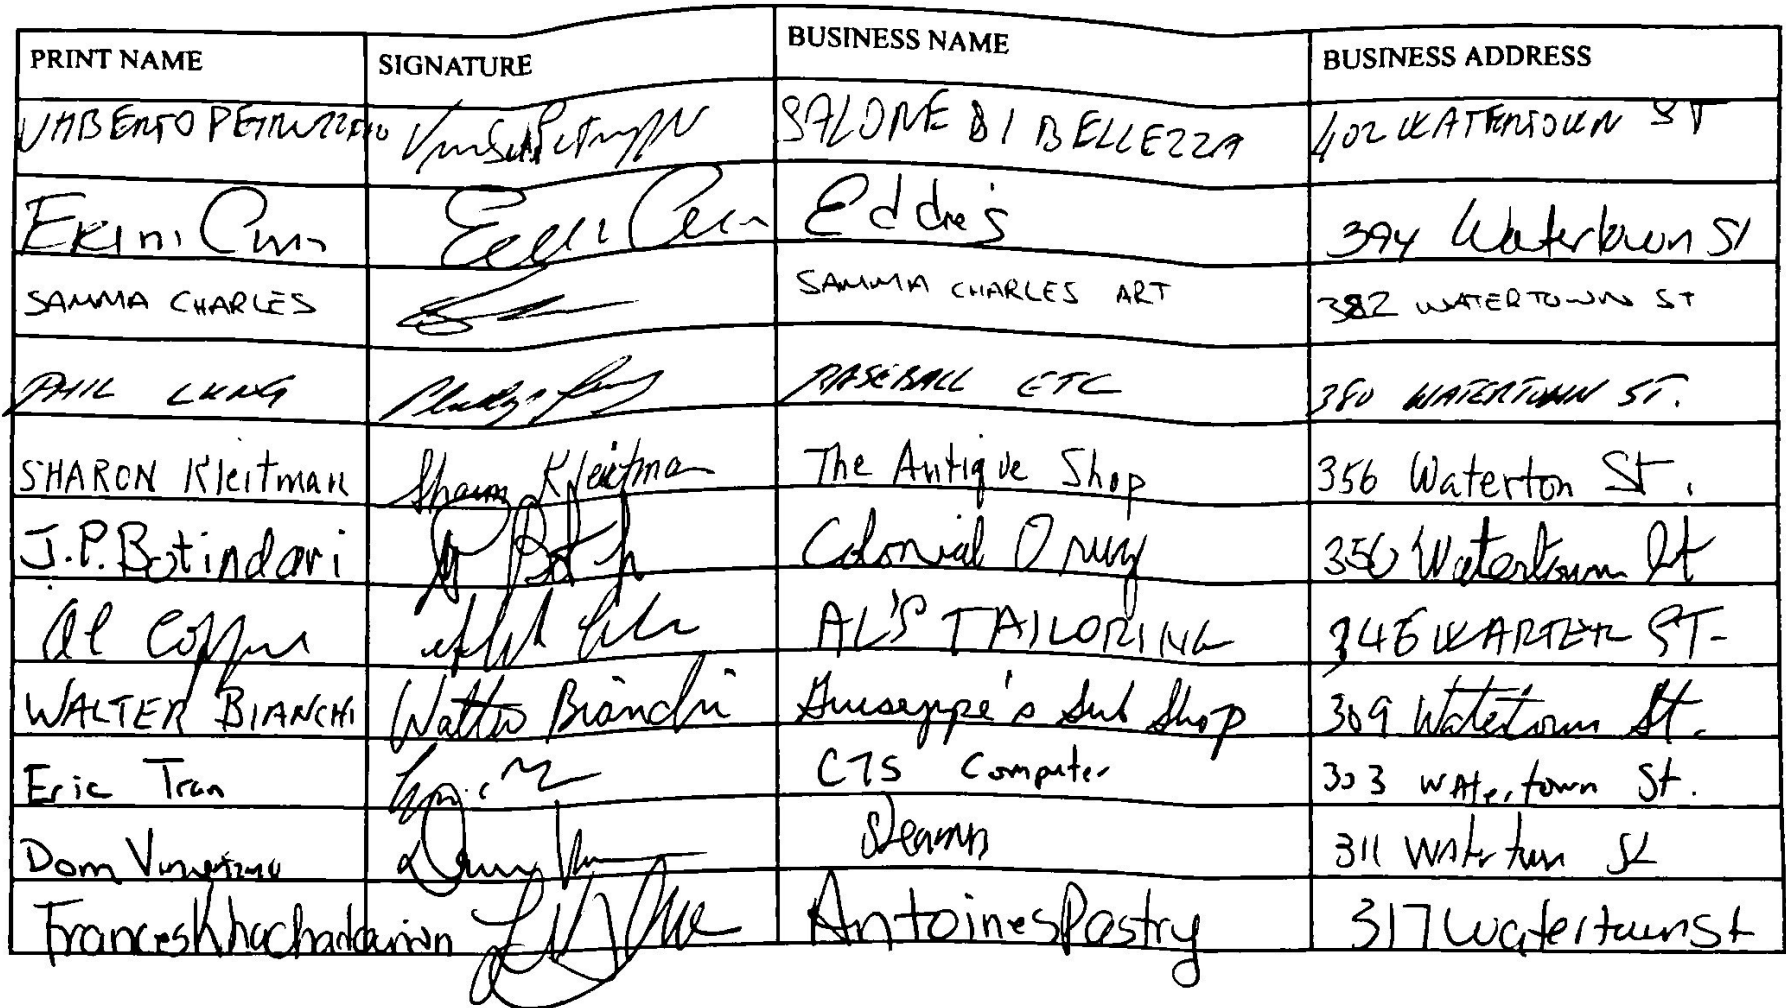 PRINT NAME SIGNATURE BUSINESS NAME BUSINESS ADDRESS
UMBERTO SALONE DI BELLEZZA 402 WATERTOWN ST
Eddie's 394 Watertown St
SAMMA CHARLES SAMMA CHARLES ART 382 WATERTOWN ST
PHIL LUNG BASEBALL ETC 380 WATERTOWN ST.
SHARON Kleitman Sharon Kleitman The Antique Shop 356 Waterton St.
J.P. Botindari Colonial Drug 356 Watertown St
Al AL'S TAILORING 346 WARTER ST-
WALTER BIANCHI Walter Bianchi Giuseppe's Sub Shop 309 Watertown St.
Eric Tran Eric CTS Computer 303 WAtertown St.
Dom 311 Watertown St
Frances Khachadourian Antoines Pastry 317 Watertown St